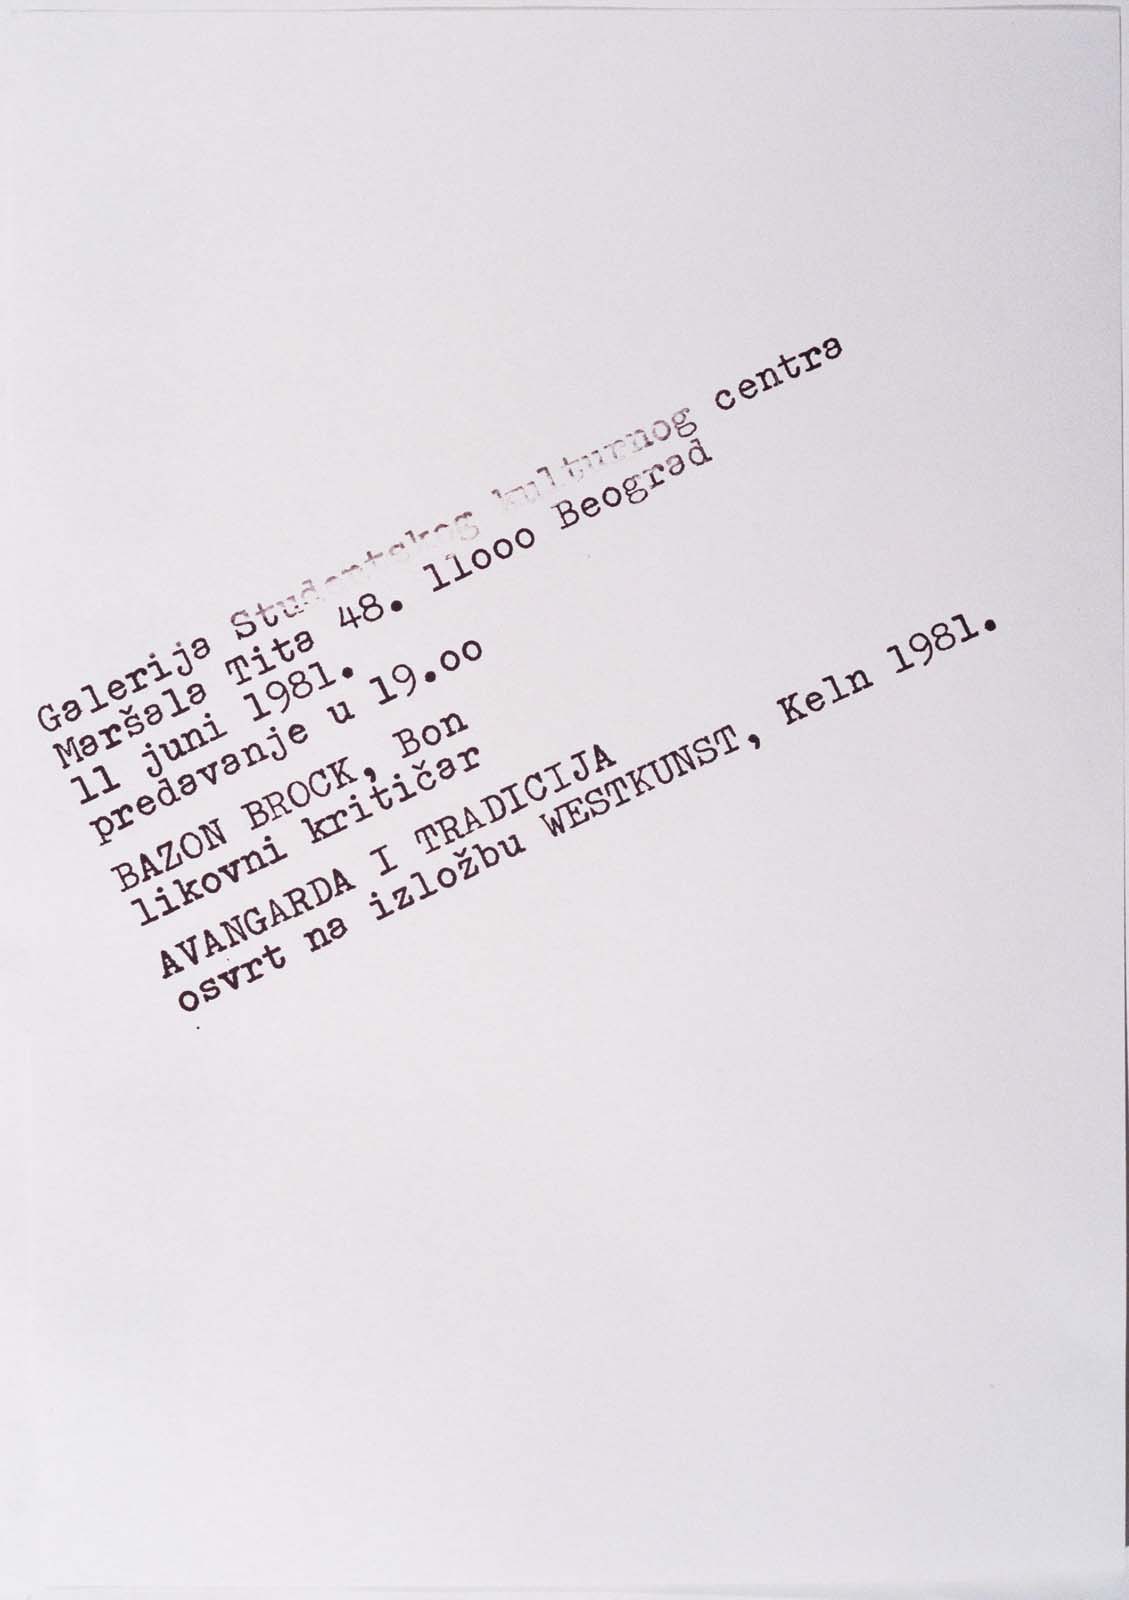 Galerija Studentskog kulturnog centra
Maršala Tita 48. 11000 Beograd
11 juni 1981.
predavanje u 19.00
BAZON BROCK, Bon
likovni kritičar
AVANGARDA I TRADICIJA
osvrt na izložbu WESTKUNST, Keln 1981.